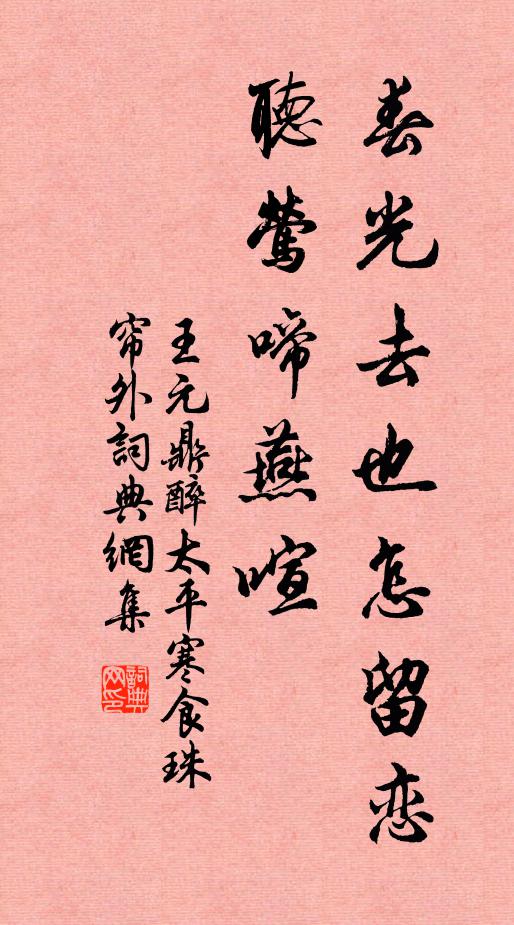 春光去也怎留恋
聽鶯啼燕喧
王元鼎醉太平寒食珠
帘外詞典網集
詞典网印